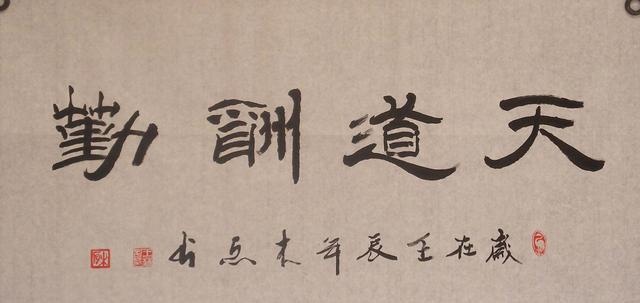 天道酬勤
歲在壬辰年末